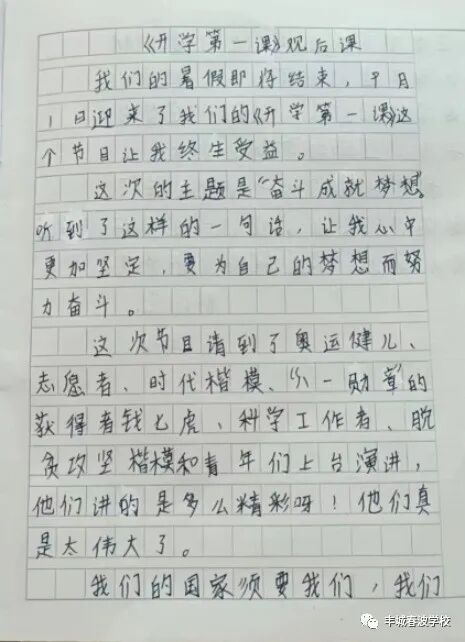 《开学第一课》观后课
我们的暑假即将结束，9月
1日迎来了我们的《开学第一课》这
个节目让我终生受益。
这次的主题是“奋斗成就梦想”。
听到了这样的一句话，让我心中
更加坚定，要为自己的梦想而努
力奋斗。
这次节目请到了奥运健儿、
志愿者、时代楷模、“八一勋章”的
获得者钱七虎、科学工作者、脱
贫攻坚楷模和青年们上台演讲，
他们讲的是多么精彩呀！他们真
是太伟大了。
我们的国家须要我们，我们
丰城春波学校